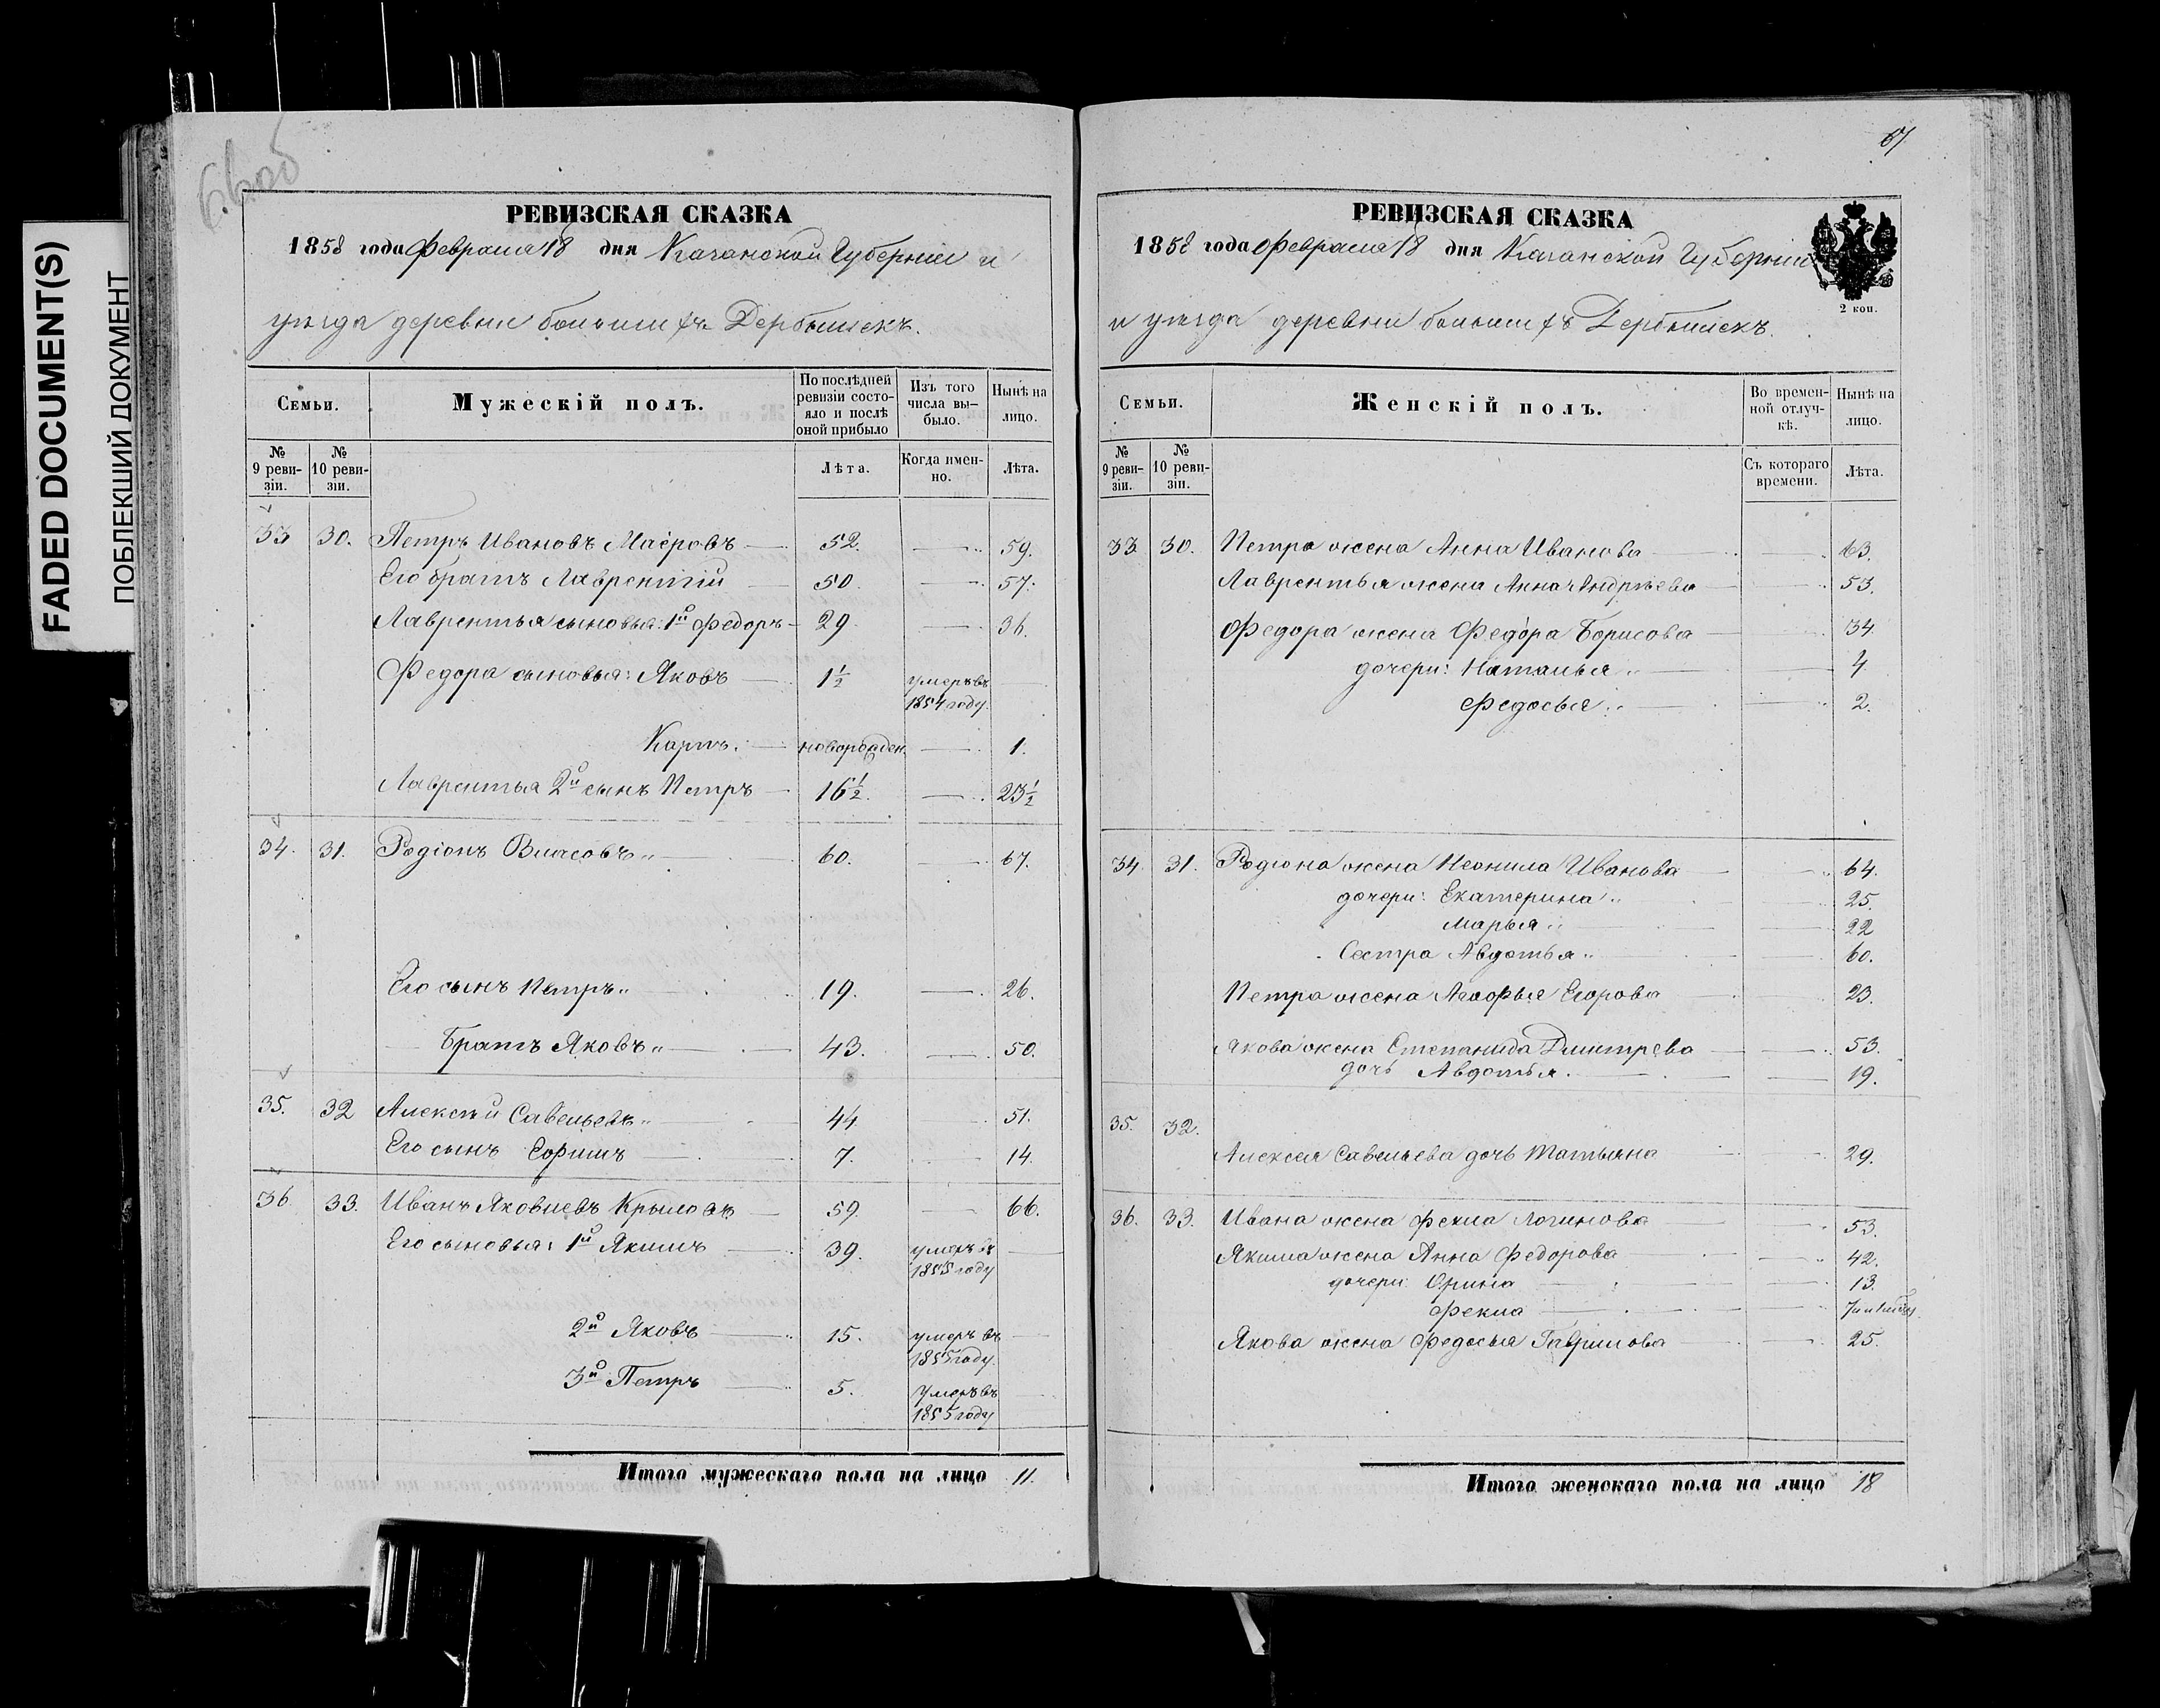 FADED DOCUMENT(S)
ПОБЛЕКШИЙ ДОКУМЕНТ
РЕВИЗСКАЯ СКАЗКА
1858 года Февраля 18 дня Казанской Губернiи и
уѣзда деревни большихъ Дербышекъ.
Семьи. Мужескiй полъ. По послѣдней ревизiи состояло и послѣ оной прибыло Изъ того числа выбыло. Нынѣ на лицо.
№ 9 ревизiи. № 10 ревизiи. Лѣта. Когда именно. Лѣта.
33 30. Петръ Ивановъ Маёровъ 52. 59.
Его братъ Лаврентiй 50. 57.
Лаврентья сыновья: 1й Федоръ 29 36.
Федора сыновья: Яковъ 1½ умеръ въ 1854 году.
Карпъ. новорожден. 1.
Лаврентья 2й сынъ Петръ 16½. 23½
34. 31. Родiонъ Власовъ 60. 67.
Его сынъ Петръ 19. 26.
Братъ Яковъ 43. 50.
35. 32 Алексѣй Савельевъ 44 51.
Его сынъ Ефимъ 7. 14.
36 33. Иванъ Яковлевъ Крыловъ 59. 66.
Его сыновья: 1й Якимъ 39. умеръ въ 1855 году
2й Яковъ 15. умеръ въ 1855 году.
3й Петръ 5. умеръ въ 1855 году
Итого мужескаго пола на лицо 11.
67
РЕВИЗСКАЯ СКАЗКА
1858 года Февраля 18 дня Казанской Губернiи
2 коп.
и уѣзда деревни большихъ Дербышекъ.
Семьи. Женскiй полъ. Во временной отлучкѣ. Нынѣ на лицо.
№ 9 ревизiи. № 10 ревизiи. Съ котораго времени. Лѣта.
33 30. Петра жена Анна Иванова 63.
Лаврентья жена Анна Андрѣева 53.
Федора жена Федора Борисова 34.
дочери: Наталья 4
Федосья 2.
34 31. Родiона жена Неонила Иванова 64.
дочери: Екатерина 25.
Марья 22
Сестра Авдотья 60.
Петра жена Егорова 23.
Якова жена Степанида Дмитрева 53.
дочь Авдотья. 19.
35. 32.
Алексея Савельева дочь Татьяна 29.
36. 33. Ивана жена Фекла Логинова 53
Якима жена Анна Федорова 42.
дочери: Орина 13.
Фекла
Якова жена Федосья Гаврилова 25.
Итого женскаго пола на лицо 18